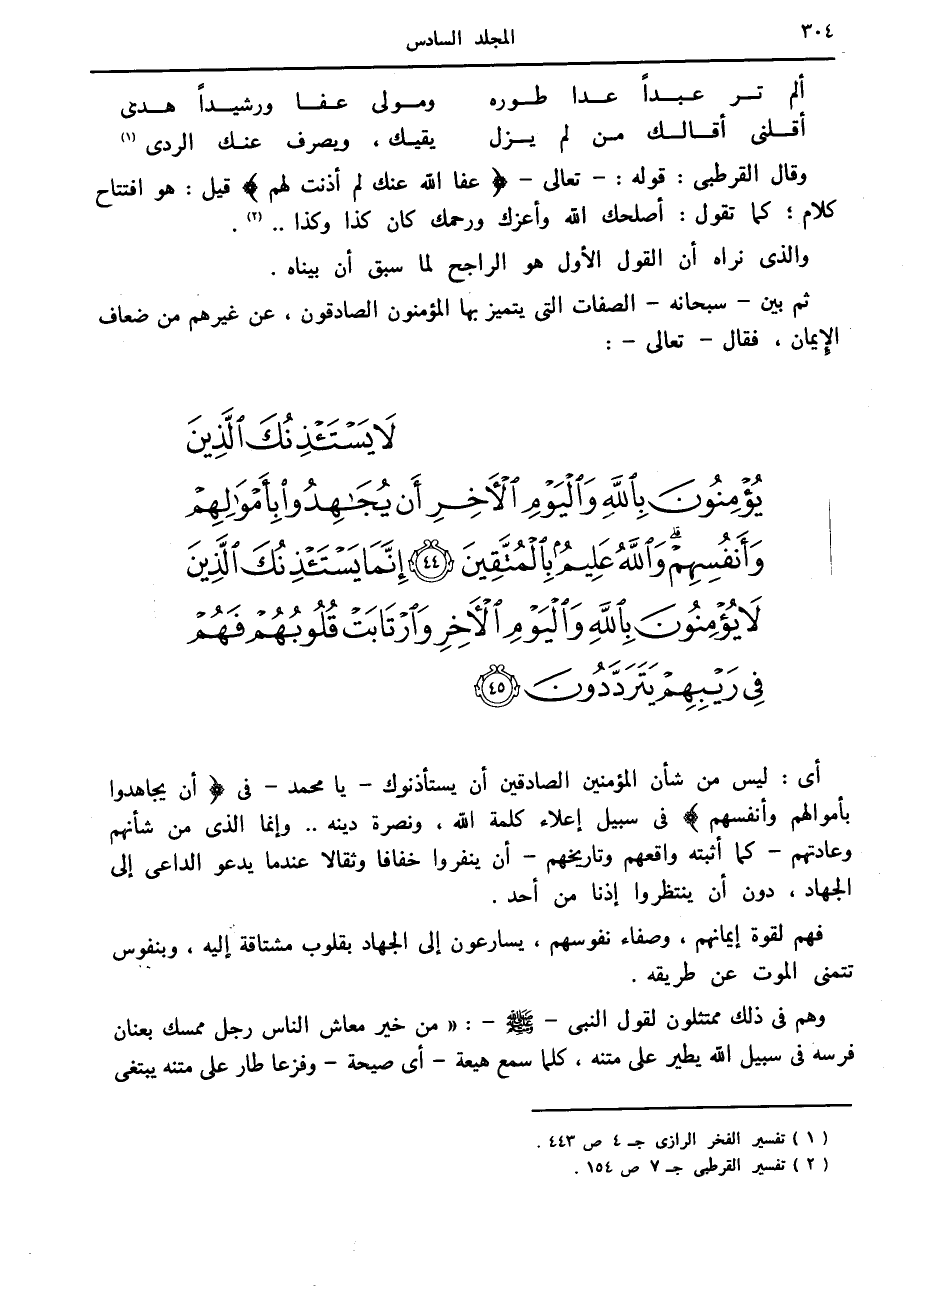 ٣٠٤
المجلد السادس
ألم تــر عـبـداً عـدا طـوره ومـولى عـفـا ورشيـداً هـدى
أقـلنى أقـالـك مـن لم يـزل يقيـك ، ويصرف عنـك الردى (١)
وقال القرطبى : قوله : – تعالى – ﴿ عفا الله عنك لم أذنت لهم ﴾ قيل : هو افتتاح
كلام ؛ كما تقول : أصلحك الله وأعزك ورحمك كان كذا وكذا .. (٢) .
والذى نراه أن القول الأول هو الراجح لما سبق أن بيناه .
ثم بين – سبحانه – الصفات التى يتميز بها المؤمنون الصادقون ، عن غيرهم من ضعاف
الإيمان ، فقال – تعالى – :
لَا يَسْتَـْٔذِنُكَ ٱلَّذِينَ
يُؤْمِنُونَ بِٱللَّهِ وَٱلْيَوْمِ ٱلْأَخِرِ أَن يُجَـٰهِدُوا۟ بِأَمْوَٰلِهِمْ
وَأَنفُسِهِمْ ۗ وَٱللَّهُ عَلِيمٌۢ بِٱلْمُتَّقِينَ ﴿٤٤﴾ إِنَّمَا يَسْتَـْٔذِنُكَ ٱلَّذِينَ
لَا يُؤْمِنُونَ بِٱللَّهِ وَٱلْيَوْمِ ٱلْأَخِرِ وَٱرْتَابَتْ قُلُوبُهُمْ فَهُمْ
فِى رَيْبِهِمْ يَتَرَدَّدُونَ ﴿٤٥﴾
أى : ليس من شأن المؤمنين الصادقين أن يستأذنوك – يا محمد – فى ﴿ أن يجاهدوا
بأموالهم وأنفسهم ﴾ فى سبيل إعلاء كلمة الله ، ونصرة دينه .. وإنما الذى من شأنهم
وعادتهم – كما أثبته واقعهم وتاريخهم – أن ينفروا خفافا وثقالا عندما يدعو الداعى إلى
الجهاد ، دون أن ينتظروا إذنا من أحد .
فهم لقوة إيمانهم ، وصفاء نفوسهم ، يسارعون إلى الجهاد بقلوب مشتاقة إليه ، وبنفوس
تتمنى الموت عن طريقه .
وهم فى ذلك ممتثلون لقول النبى – ﷺ – : « من خير معاش الناس رجل ممسك بعنان
فرسه فى سبيل الله يطير على متنه ، كلما سمع هيعة – أى صيحة – وفزعا طار على متنه يبتغى
( ١ ) تفسير الفخر الرازى جـ ٤ ص ٤٤٣ .
( ٢ ) تفسير القرطبى جـ ٧ ص ١٥٤ .